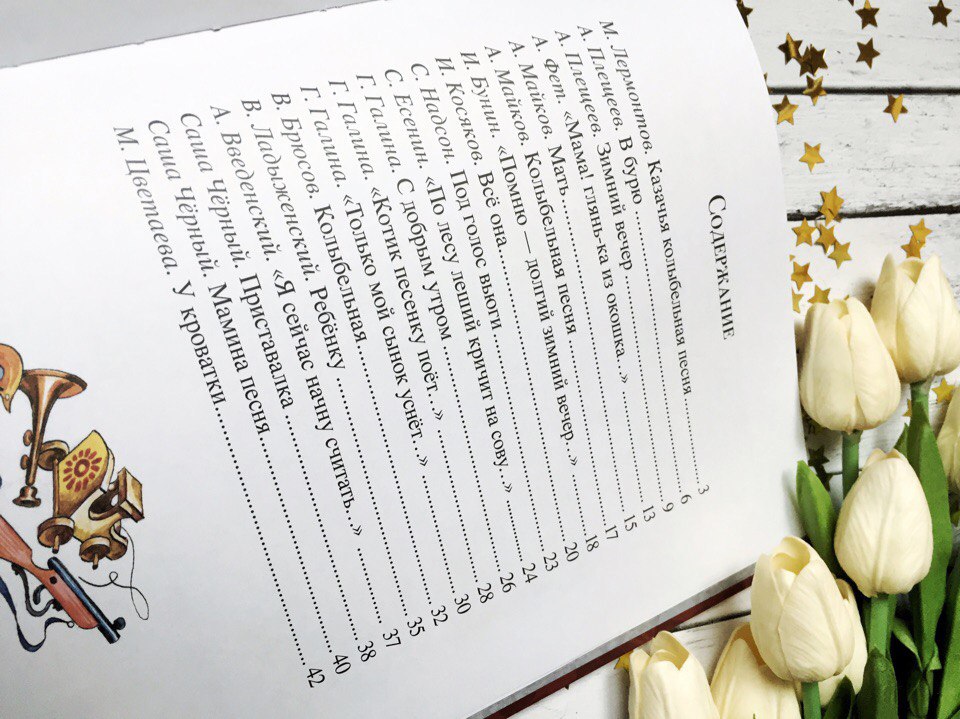 СОДЕРЖАНИЕ
М. Лермонтов. Казачья колыбельная песня ..... 3
А. Плещеев. В бурю ..... 6
А. Плещеев. Зимний вечер ..... 9
А. Фет. «Мама! глянь-ка из окошка...» ..... 13
А. Майков. Мать ..... 15
А. Майков. Колыбельная песня ..... 17
И. Бунин. «Помню — долгий зимний вечер...» ..... 18
И. Косяков. Всё она ..... 20
С. Надсон. Под голос вьюги ..... 23
С. Есенин. «По лесу леший кричит на сову...» ..... 24
Г. Галина. С добрым утром ..... 26
Г. Галина. «Котик песенку поёт...» ..... 28
Г. Галина. «Только мой сынок уснёт...» ..... 30
В. Брюсов. Колыбельная ..... 32
В. Ладыженский. Ребёнку ..... 35
А. Введенский. «Я сейчас начну считать...» ..... 37
Саша Чёрный. Приставалка ..... 38
Саша Чёрный. Мамина песня ..... 40
М. Цветаева. У кроватки ..... 42